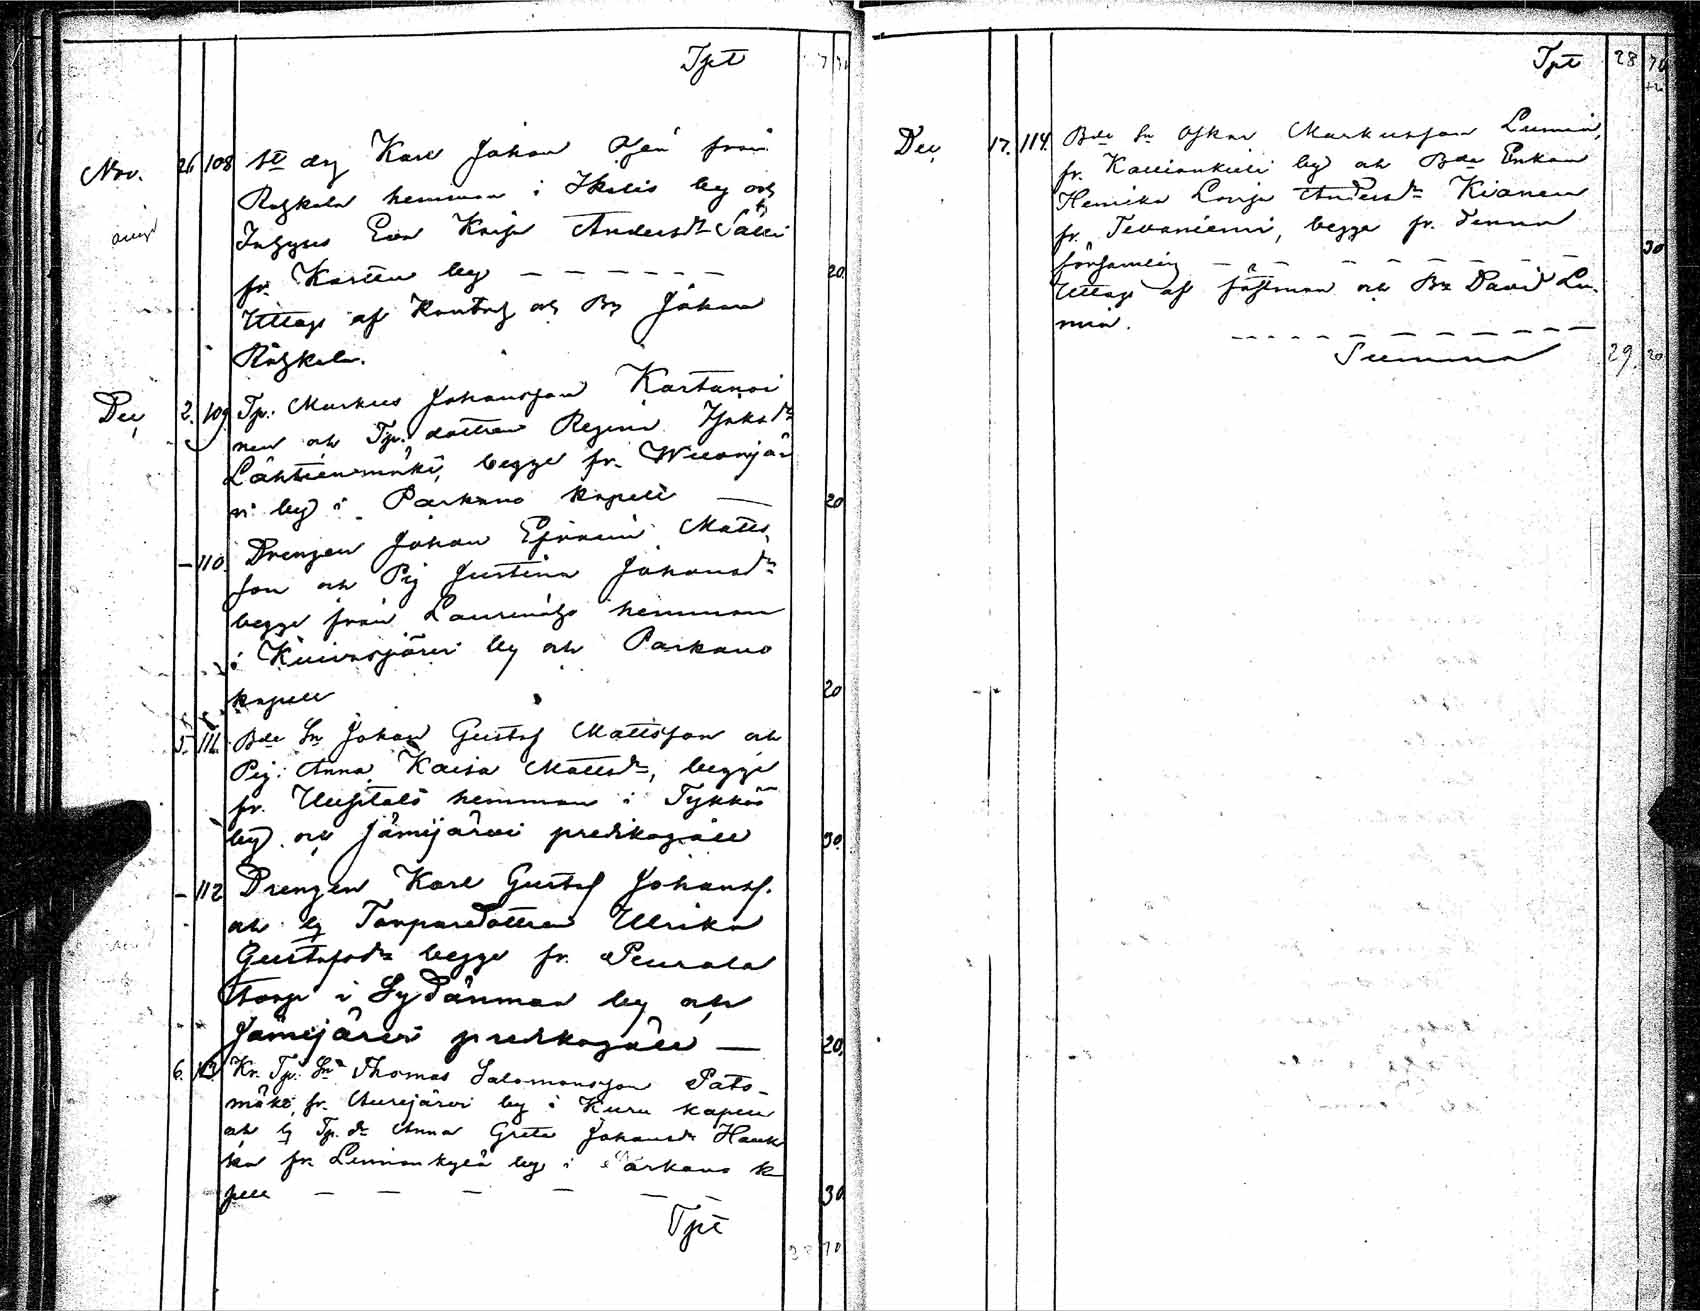 Tpt
Nov. 26 108 St drg Karl Johan från
hemman i Ikalis by och
Inhyses Eva Kajsa Andersdr Sälli
fr. by — — — — — — 20
Uttags af och Johan
Dec. 2. 109 Tp: Markus Johansson Kartanoi
nen och Tp. dottren Regina
Lähteenmäki, begge fr.
vi by i Parkano kapell — 20
— 110. Drengen Johan Efraim Matts
son och Pig Justina Johansdr
begge från hemman
i Kuivasjärvi by och Parkano
kapell 20
5. 111. Bde Sn Johan Gustaf Mattsson och
Pig. Anna Kaisa Mattsdr, begge
fr. hemman i Tykköö
by och Jämijärvi predikogäll 30
— 112 Drengen Karl Gustaf Johanss.
och Torparedottren Ulrika
Gustafsdr begge fr. Peurala
torp i Sydänmaa by och
Jämijärvi predikogäll — 20
6. 113 Kr. Tp. Sn Thomas Salomonsson Pato-
mäki, fr. Aurejärvi by i Kuru kapell
och Tp. dr Anna Greta Johansdr Hauk
ka fr. Linnankylä by i Parkano ka
pell — — — — — — 30
Tpt
70
Tpt 28 70
Dec. 17. 114. Bde Sn Oskar Markusson Lumiä,
fr. by och Bde Enkan
Henrika Lovisa Andersdr Kianen
fr. Tevaniemi, begge fr. denna
församling — — — — — — — 30
Uttags af fästman och Br David Lu-
miä. — — — — — — —
Summa 29. 20